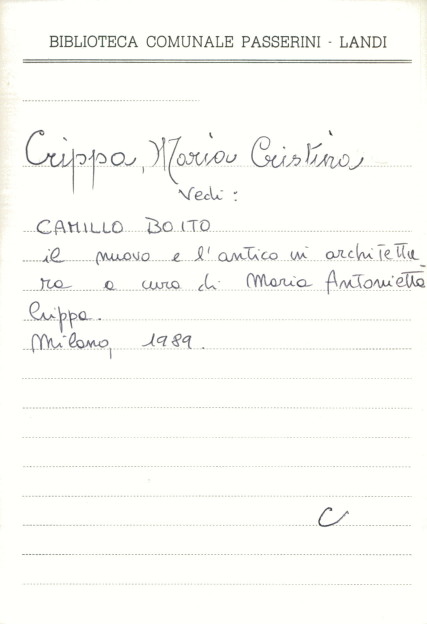 BIBLIOTECA COMUNALE PASSERINI - LANDI
Crippa, Maria Cristina
Vedi :
CAMILLO BOITO
il nuovo e l'antico in architettu
ra a cura di Maria Antonietta
Crippa.
Milano, 1989.
C